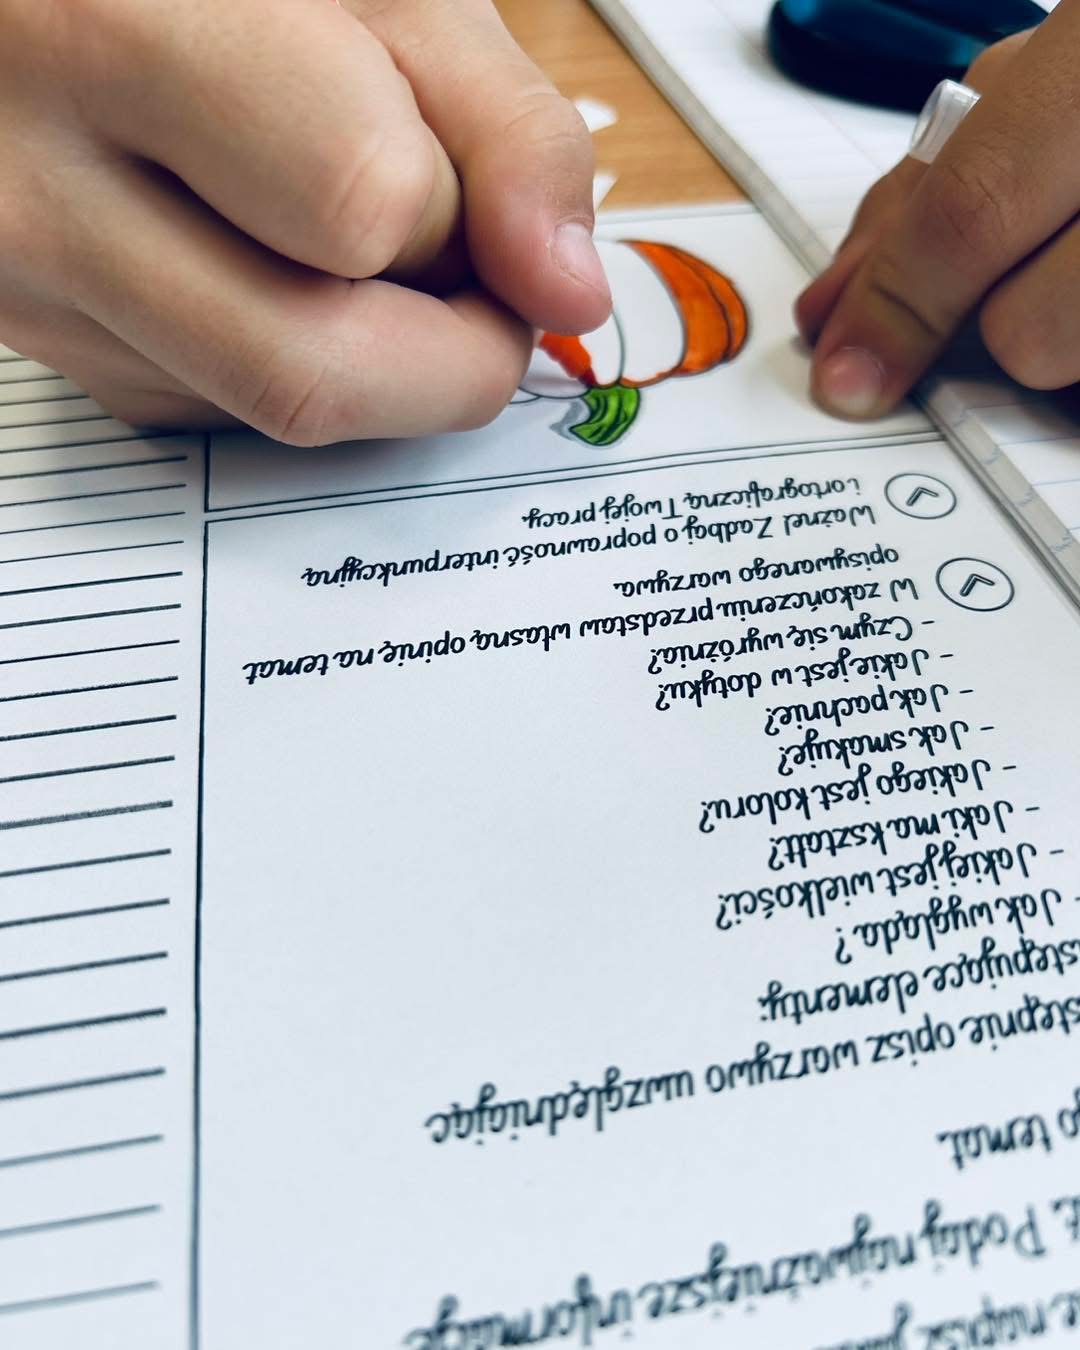 Podaj najważniejsze informacje
temat.
opisz warzywo uwzględniając
elementy:
- Jak wygląda?
- Jakiej jest wielkości?
- Jaki ma kształt?
- Jakiego jest koloru?
- Jak smakuje?
- Jak pachnie?
- Jakie jest w dotyku?
- Czym się wyróżnia?
W zakończeniu przedstaw własną opinię na temat
opisywanego warzywa.
Ważne! Zadbaj o poprawność interpunkcyjną
i ortograficzną Twojej pracy.